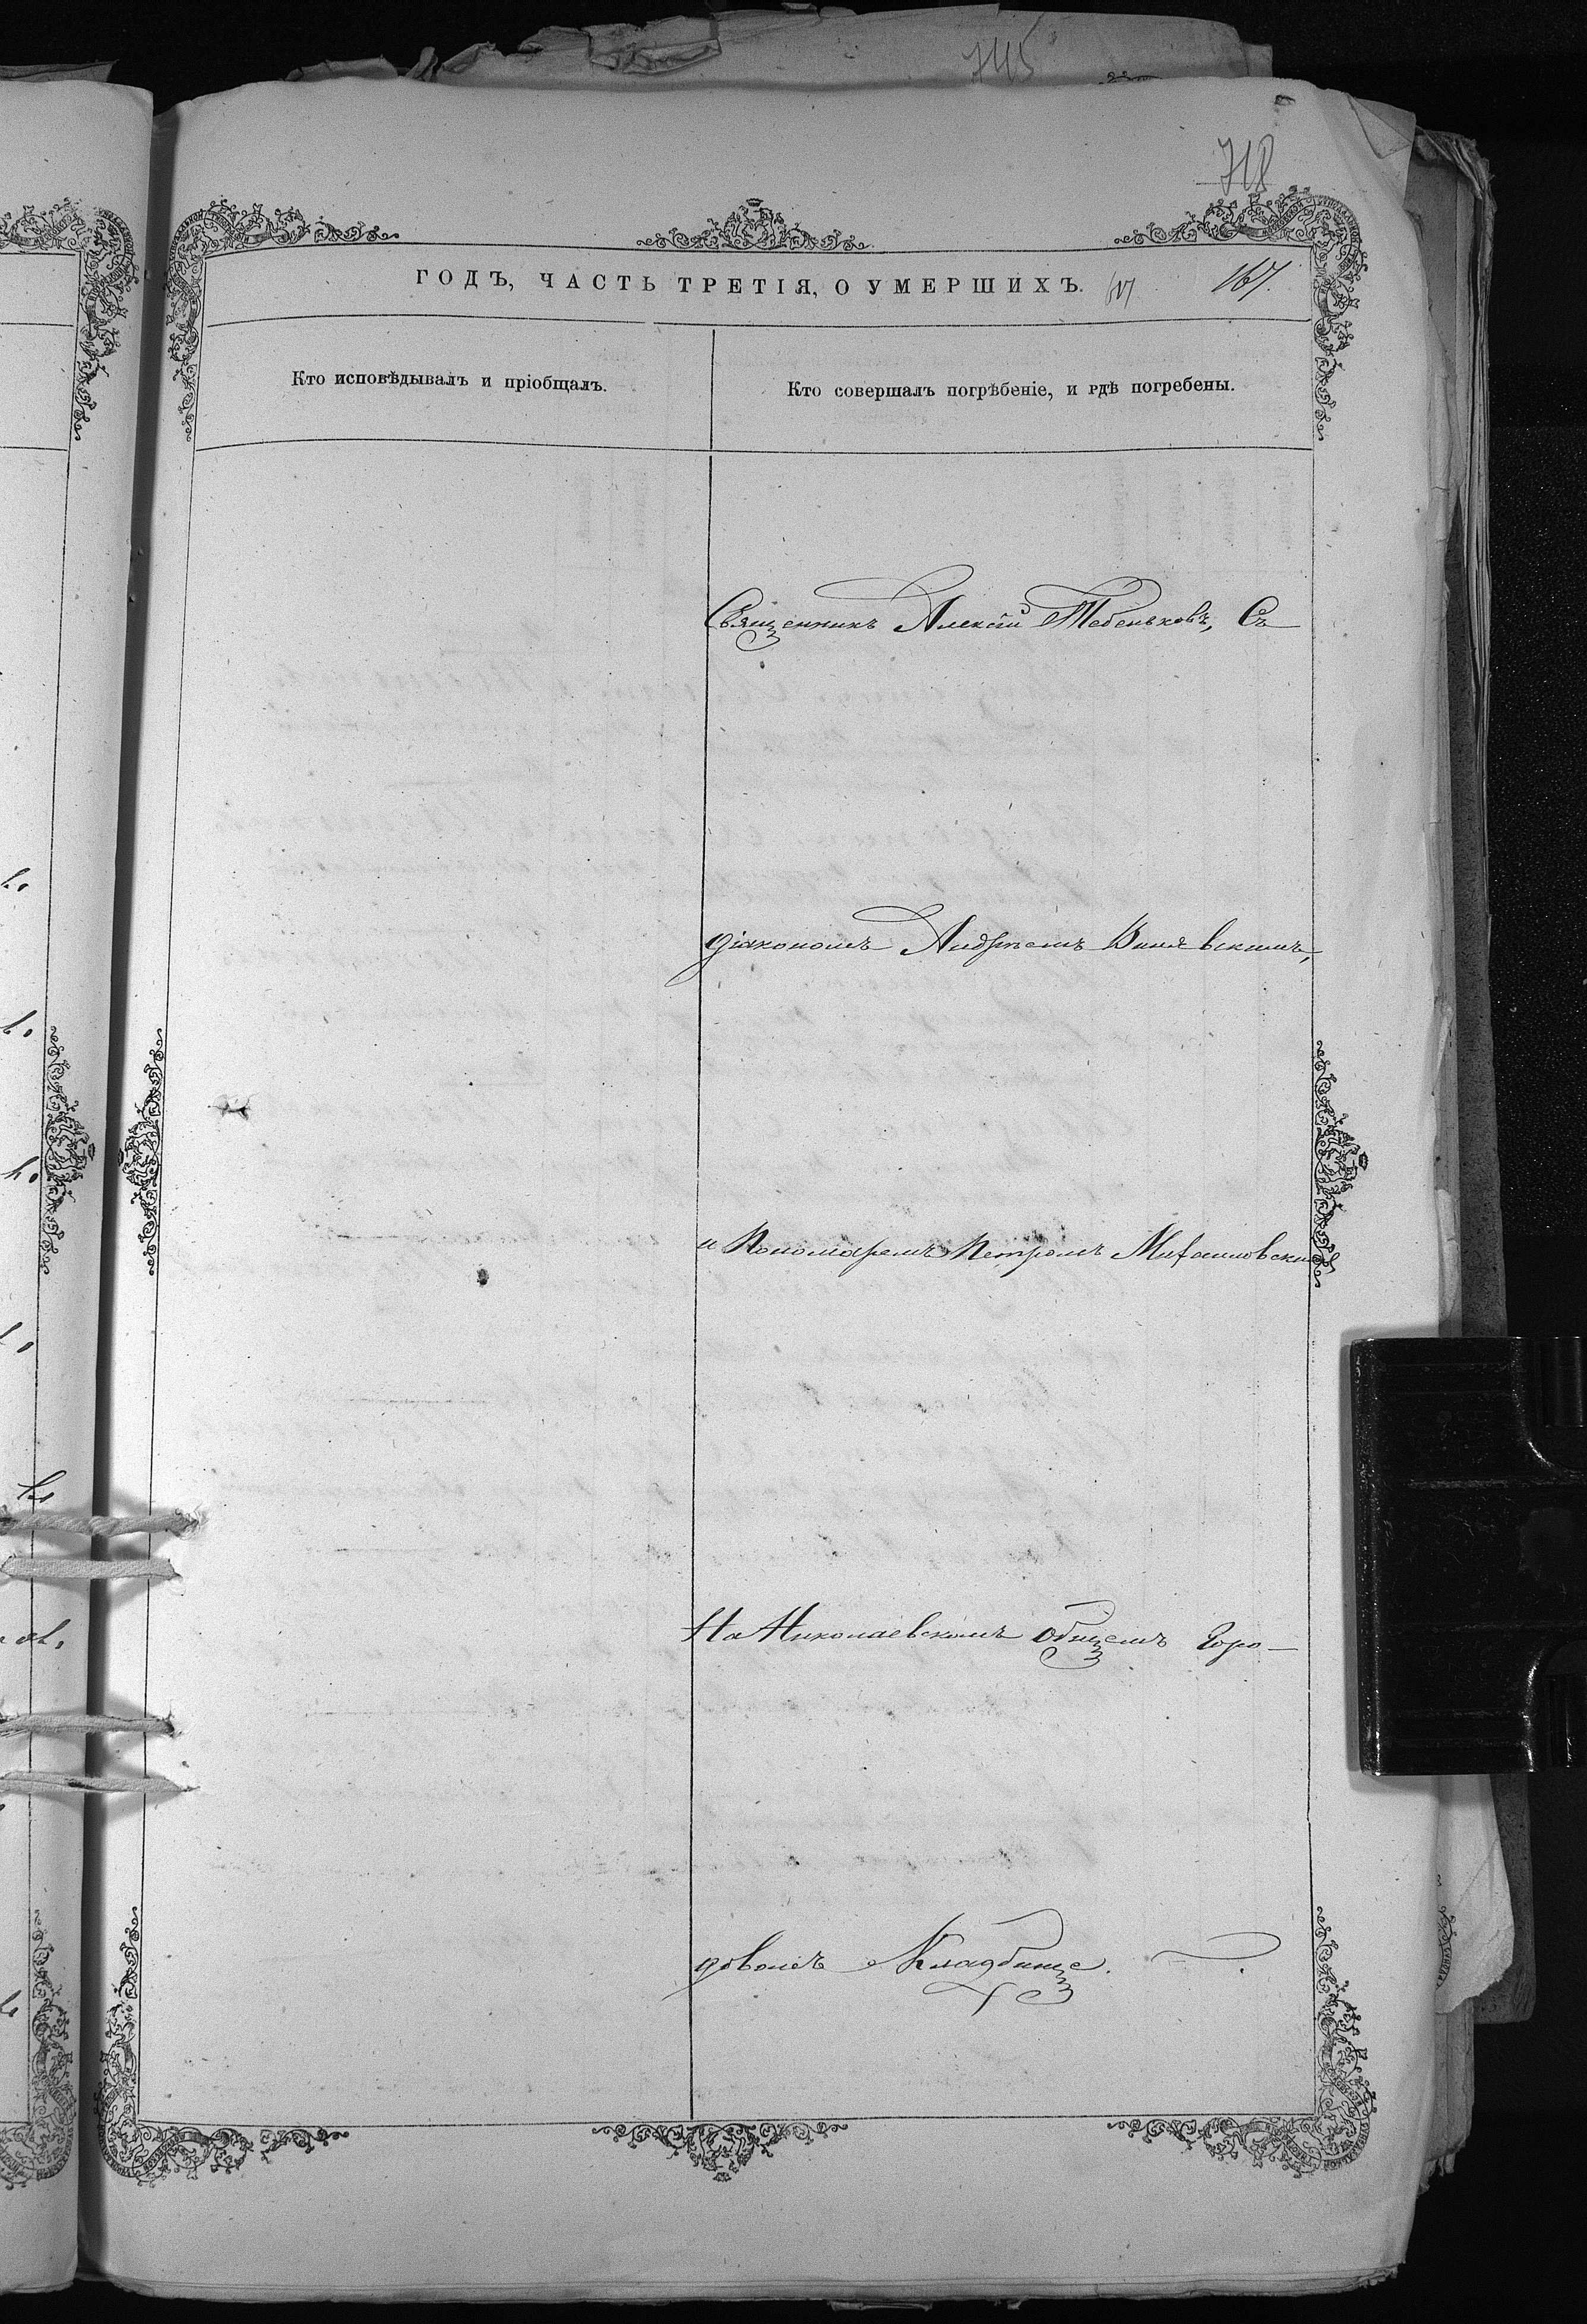 745
718
ГОДЪ, ЧАСТЬ ТРЕТІЯ, О УМЕРШИХЪ.
167.
Кто исповѣдывалъ и пріобщалъ.
Кто совершалъ погрѣбеніе, и гдѣ погребены.
Священникъ Алексій Тебеньковъ, Съ
діакономъ Андреемъ
и Пономаремъ Петромъ
На Николаевскомъ общемъ Горо-
довомъ Кладбище.